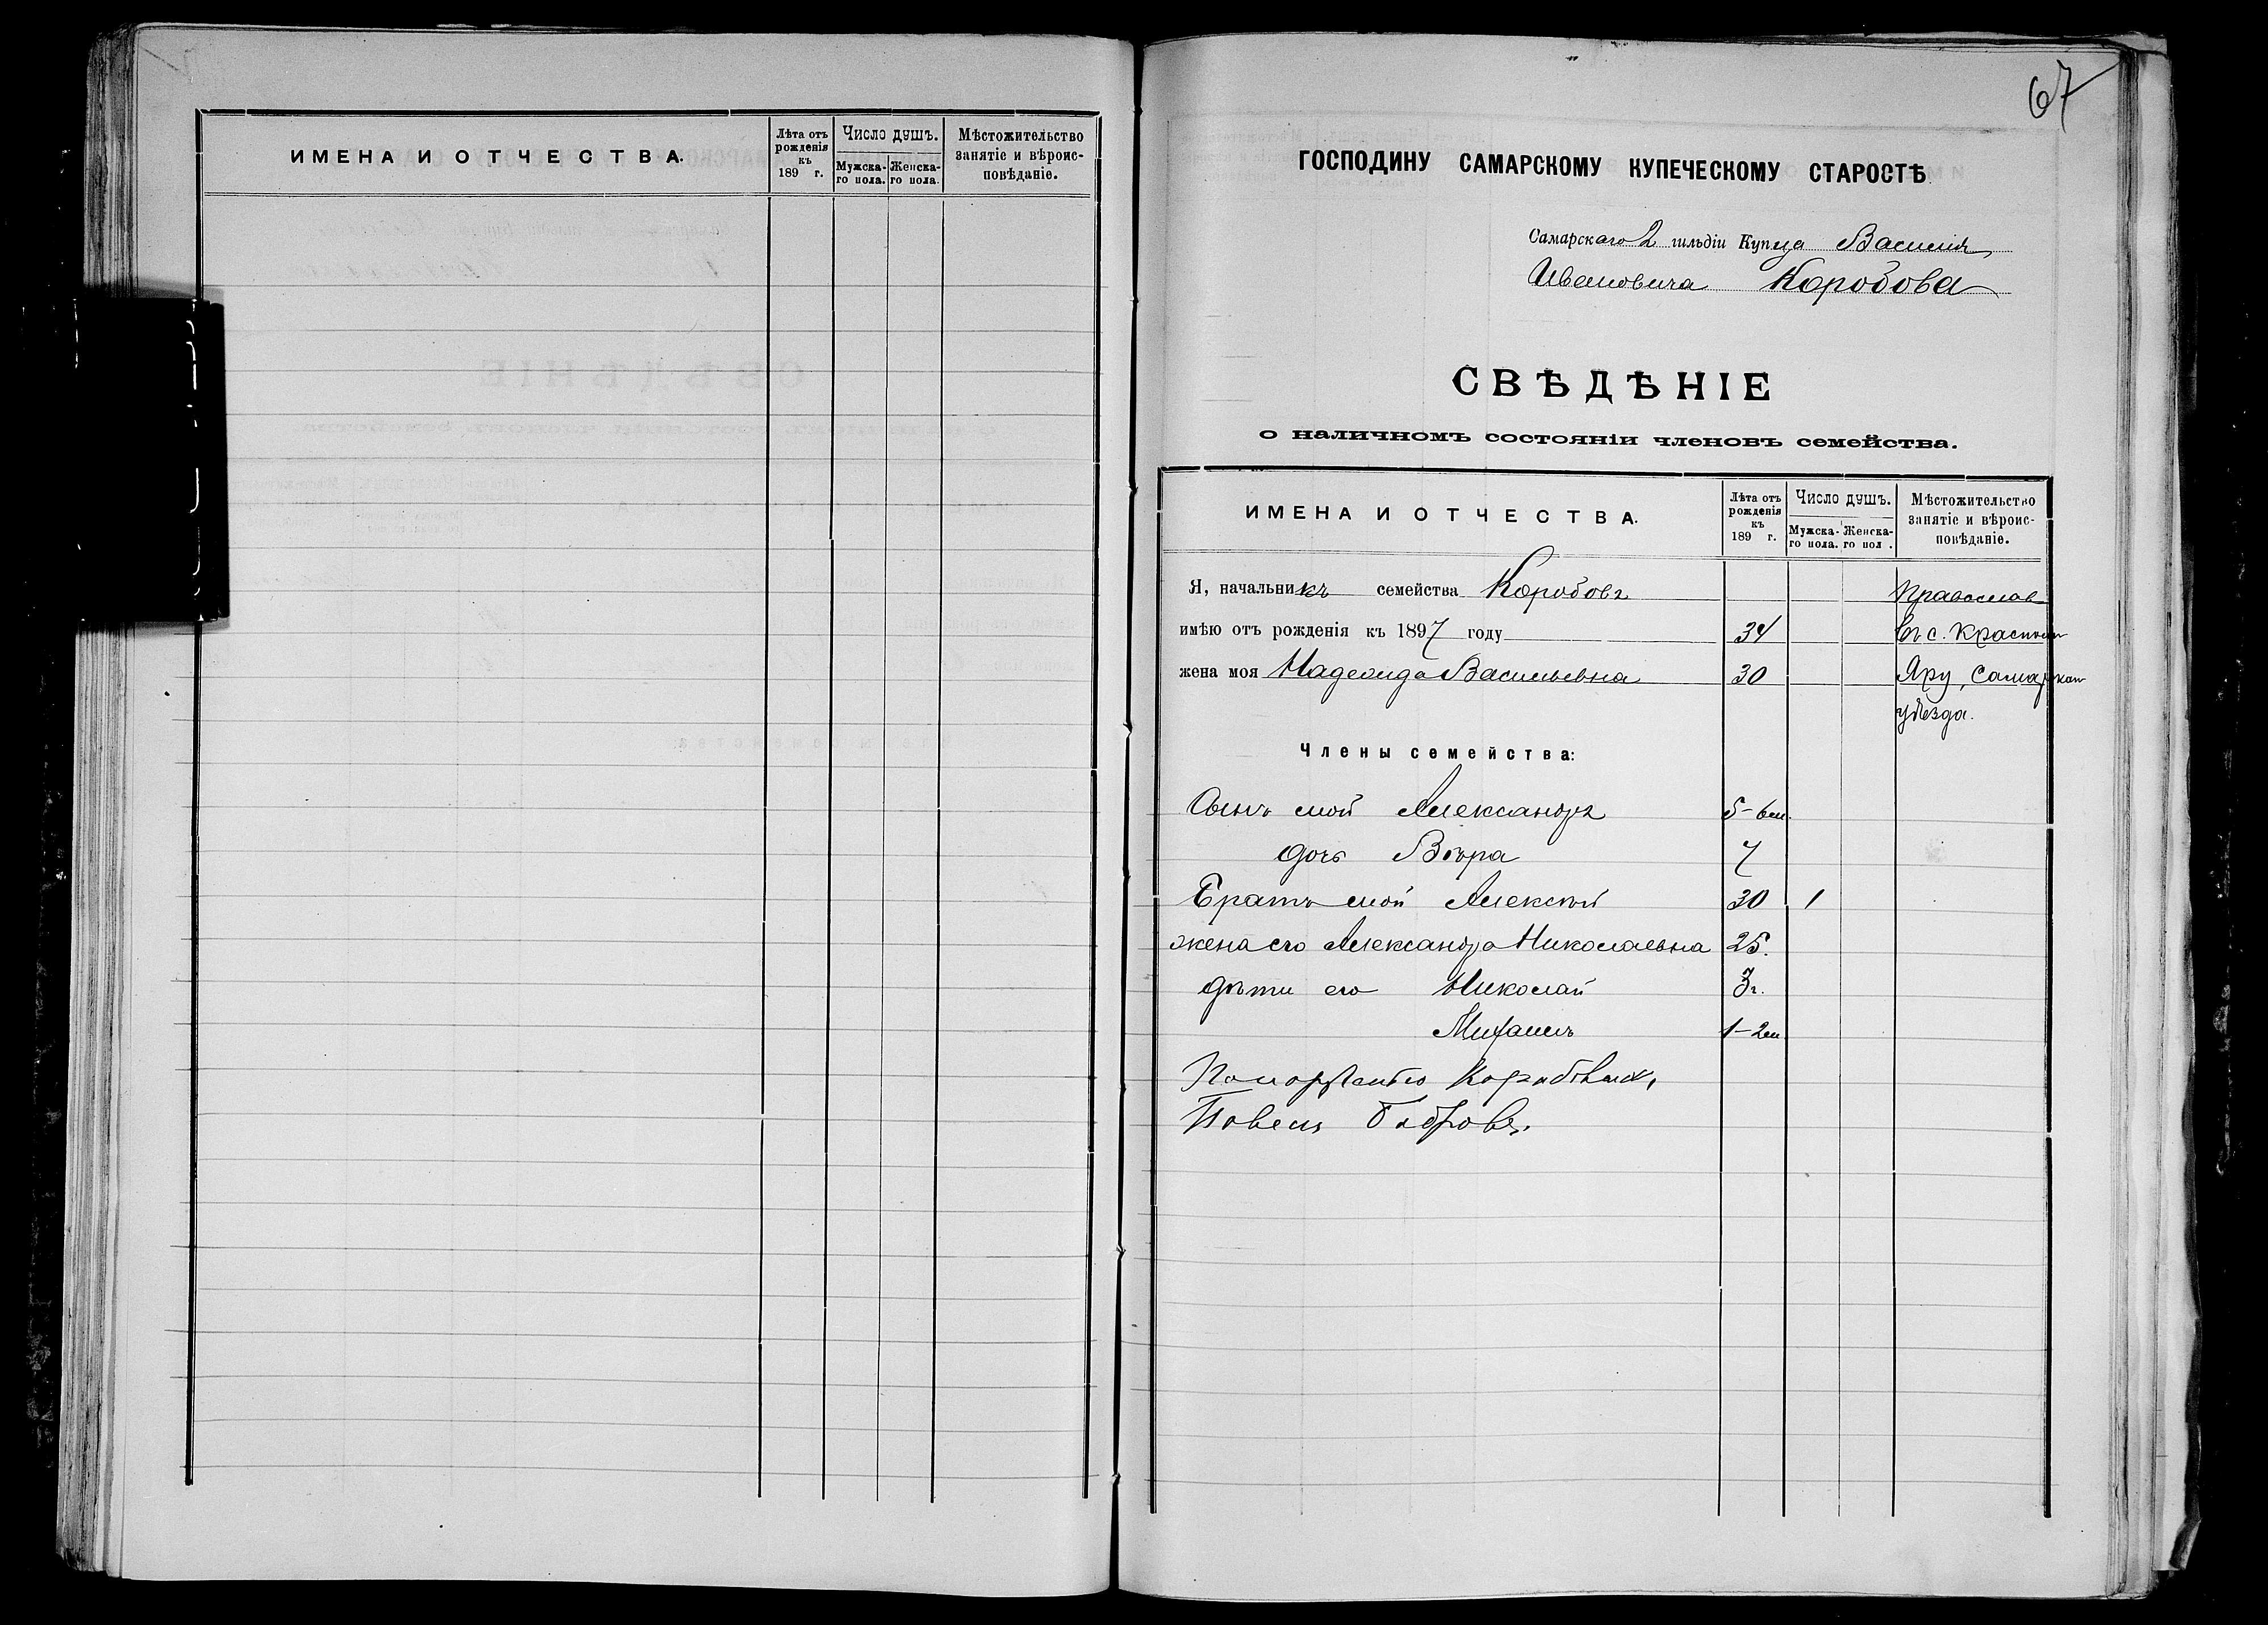 ИМЕНА И ОТЧЕСТВА.
Лѣта отъ рожденія къ 189 г.
Число душъ.
Мужска-го пола.
Женска-го пола.
Мѣстожительство занятіе и вѣроис-повѣданіе.
67
ГОСПОДИНУ САМАРСКОМУ КУПЕЧЕСКОМУ СТАРОСТѢ
Самарскаго 2 гильдіи Купца Василія
Ивановича Коробова
СВѢДѢНІЕ
о наличномъ состояніи членовъ семейства.
ИМЕНА И ОТЧЕСТВА.
Лѣта отъ рожденія къ 189 г.
Число душъ.
Мужска-го пола.
Женска-го пол .
Мѣстожительство занятіе и вѣроис-повѣданіе.
Я, начальникъ семейства Коробовъ Православ
имѣю отъ рожденія къ 1897 году 34 Въ с. Красномъ
жена моя Надежда Васильевна 30 Яру, Самарскаг
уѣзда.
Члены семейства:
Сынъ мой Александръ 5-6м.
дочь Вѣра 7
Братъ мой Алексѣй 30 1
жена его Александра Николаевна 25.
дѣти его Николай 3г.
Михаилъ 1-2м
По Коробовых,
Павелъ Бобровъ.